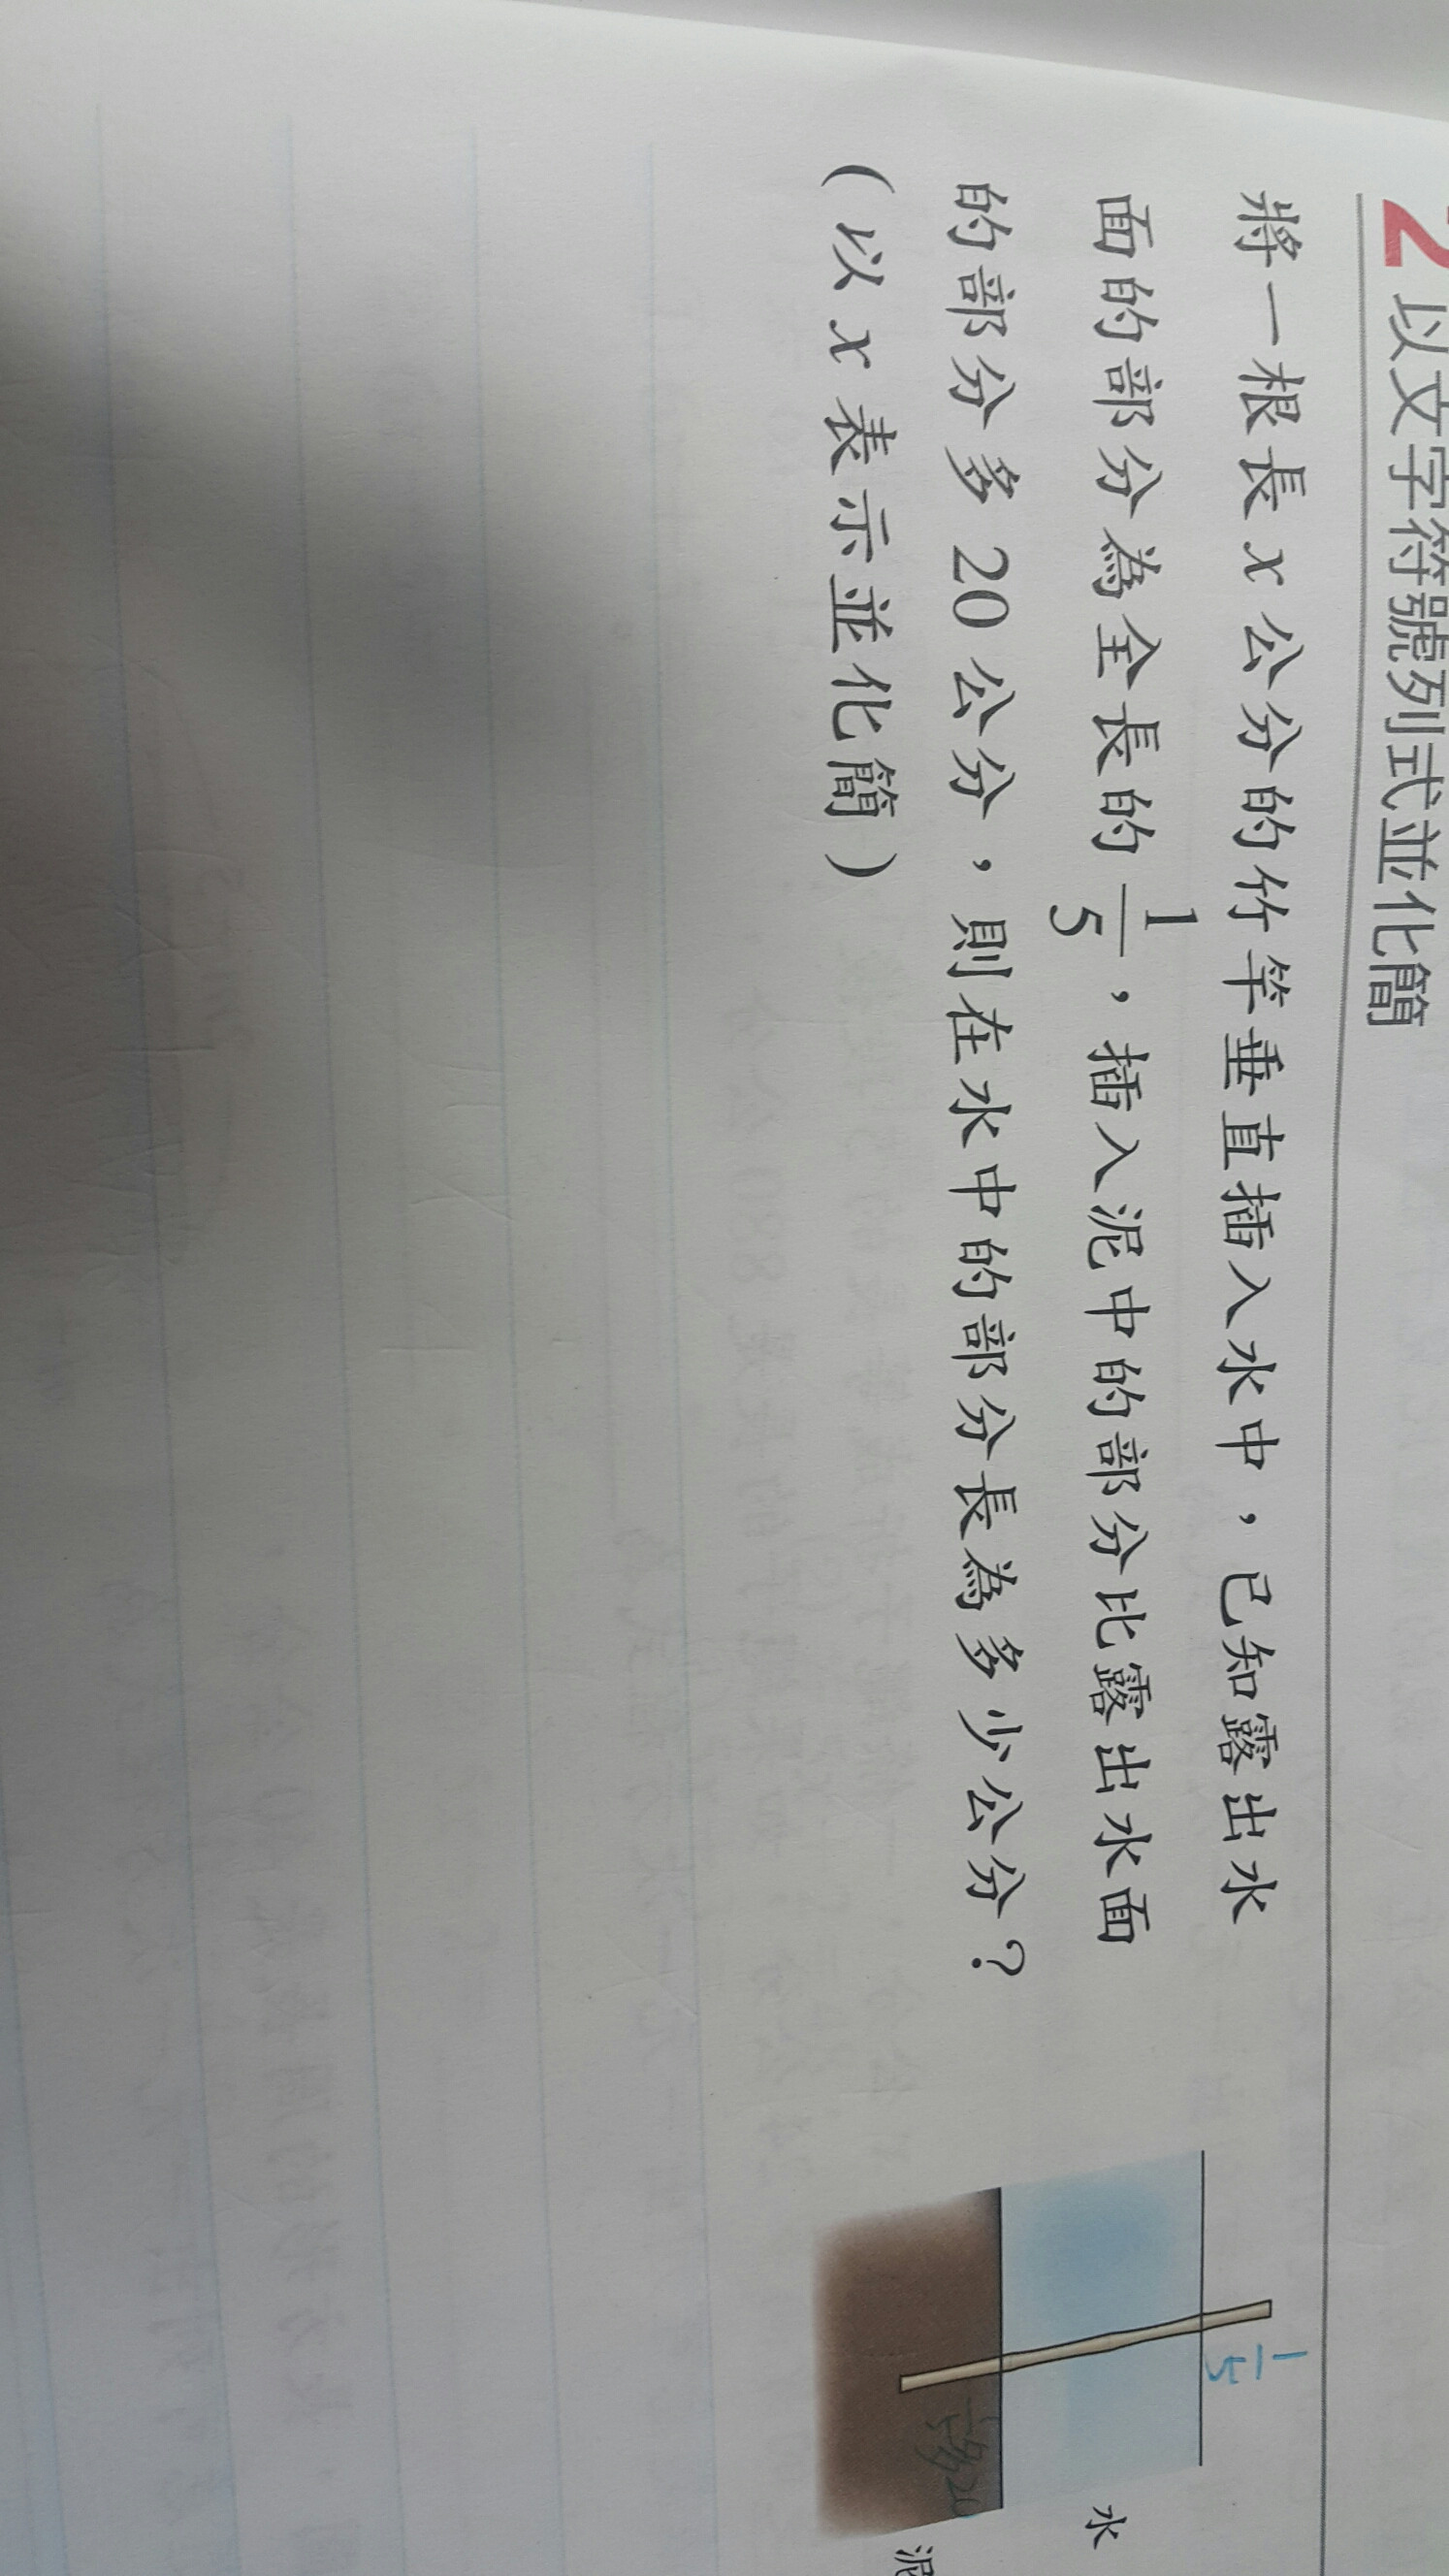 2 以文字符號列式並化簡
將一根長 x 公分的竹竿垂直插入水中，已知露出水
面的部分為全長的 1/5，插入泥中的部分比露出水面
的部分多 20 公分，則在水中的部分長為多少公分？
（以 x 表示並化簡）
1/5
水
1/5多20
泥